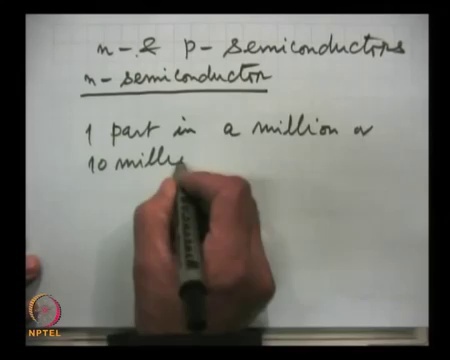 n- & p- semiconductors
n- semiconductor
1 part in a million or
10 mill
NPTEL